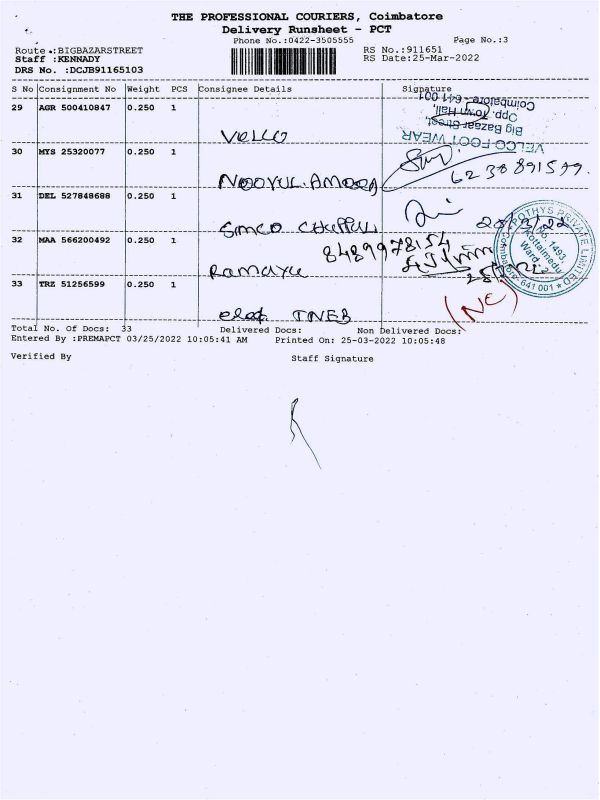 THE PROFESSIONAL COURIERS, Coimbatore
Delivery Runsheet - PCT
Phone No.:0422-3505555 Page No.:3
Route :BIGBAZARSTREET RS No.:911651
Staff :KENNADY RS Date:25-Mar-2022
DRS No. :DCJB91165103
S No Consignment No Weight PCS Consignee Details Signature
29 AGR 500410847 0.250 1
VELCO
VELCO FOOT WEAR
Big Bazaar Street,
Opp. Town Hall,
Coimbatore - 641 001
30 MYS 25320077 0.250 1
NOOYUL.AMEER
6238891599.
31 DEL 527848688 0.250 1
25/3/22
32 MAA 566200492 0.250 1
8489978154
Ramayu
POTHYS PRIVATE LIMITED
No. 1493,
Kottaimedu
Ward
Coimbatore - 641 001
33 TRZ 51256599 0.250 1
TNEB
(NC)
Total No. Of Docs: 33 Delivered Docs: Non Delivered Docs:
Entered By :PREMAPCT 03/25/2022 10:05:41 AM Printed On: 25-03-2022 10:05:48
Verified By Staff Signature